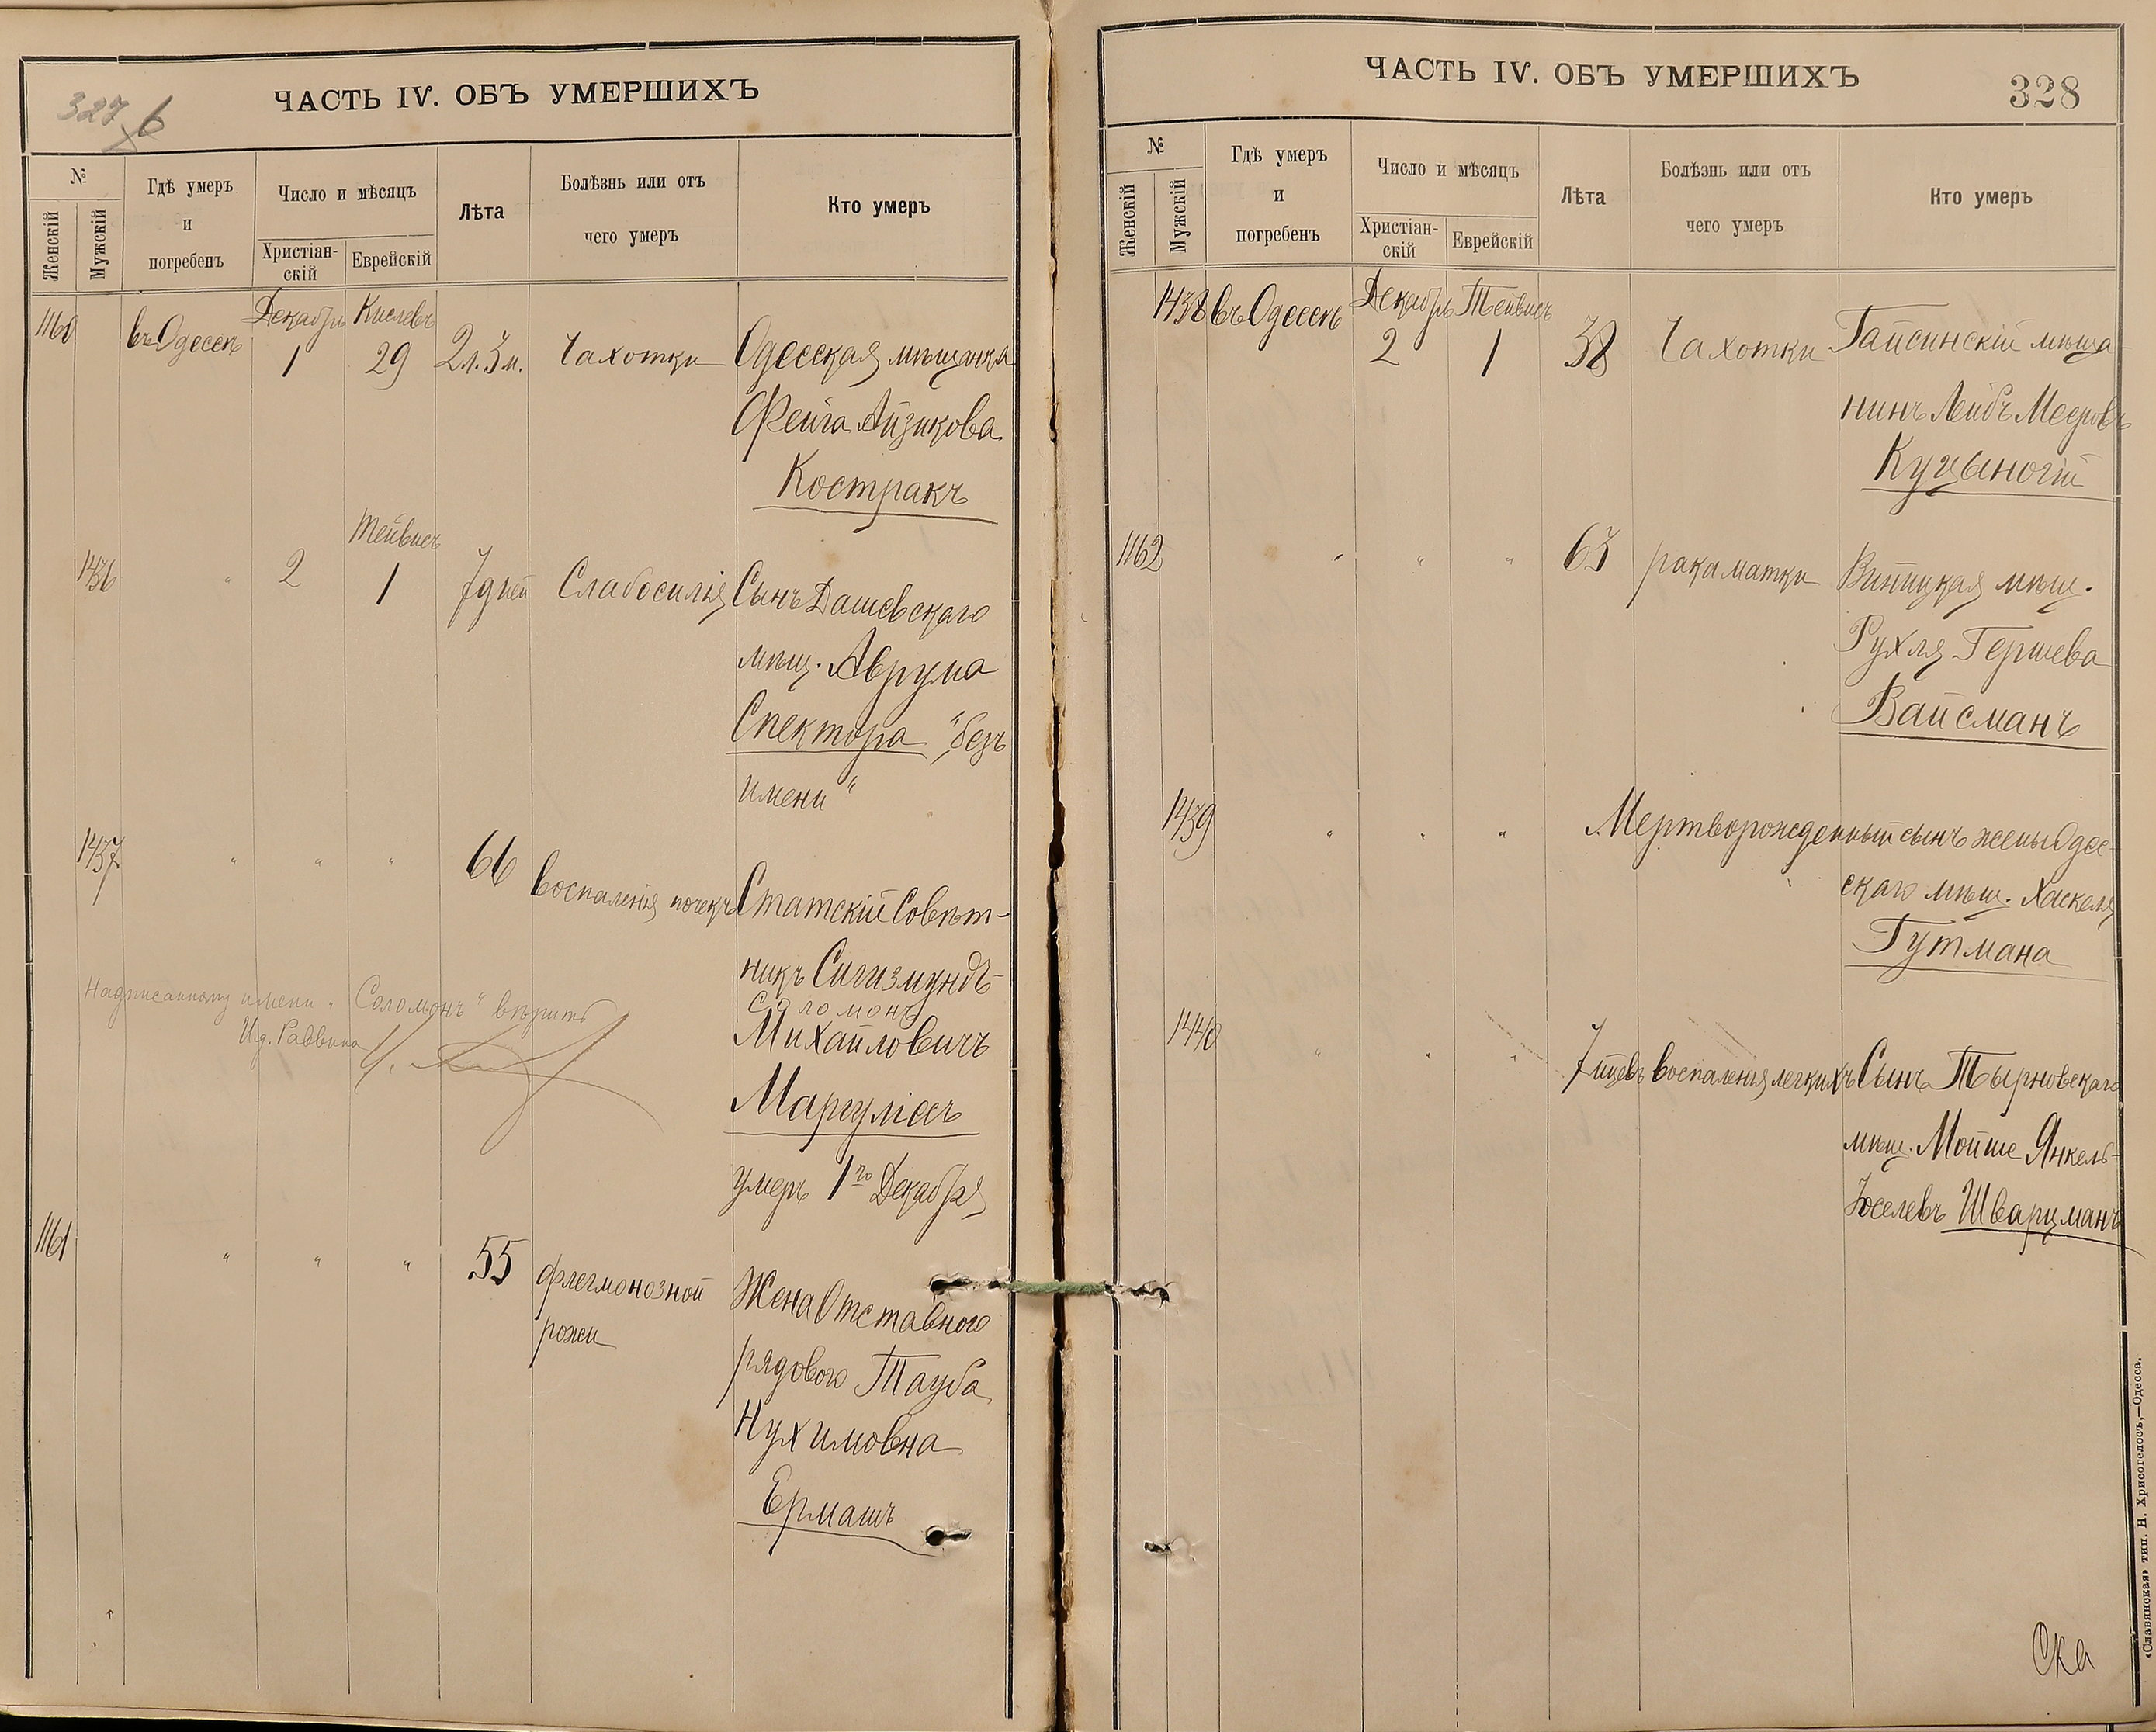 327 б
ЧАСТЬ IV. ОБЪ УМЕРШИХЪ
№
Женскій
Мужскій
Гдѣ умеръ
и
погребенъ
Число и мѣсяцъ
Христіан-
скій
Еврейскій
Лѣта
Болѣзнь или отъ
чего умеръ
Кто умеръ
1160 въ Одессѣ Декабрь 1 Кислевъ 29 2 л. 3 м. Чахотки Одесская мѣщанка
Фейга Айзикова
Костракъ
1436 " 2 Тейвисъ 1 7 дней Слабосилія Сынъ Дашевскаго
мѣщ. Аврума
Спектора „безъ
имени“
1437 " " " 66 воспаленія почекъ Статскій Совѣт-
никъ Сигизмундъ-
Соломонъ
Михайловичъ
Маргулісъ
умеръ 1го Декабря
Надписанному имени „Соломонъ“ вѣрить
И. д. Раввина
1161 " " " 55 флегмонозной
рожи
Жена Отставного
рядового Тауба
Нухимовна
Ермашъ
ЧАСТЬ IV. ОБЪ УМЕРШИХЪ
328
№
Женскій
Мужскій
Гдѣ умеръ
и
погребенъ
Число и мѣсяцъ
Христіан-
скій
Еврейскій
Лѣта
Болѣзнь или отъ
чего умеръ
Кто умеръ
1438 въ Одессѣ Декабрь 2 Тейвисъ 1 38 Чахотки Гайсинскій мѣща-
нинъ Лейбъ Мееровъ
Куцыногій
1162 " " " 63 рака матки Виницкая мѣщ.
Рухля Гершева
Вайсманъ
1439 " " " Мертворожденный сынъ жены Одес-
скаго мѣщ. Хаскеля
Гутмана
1440 " " " 7 мцевъ воспаленія легкихъ Сынъ Тырновскаго
мѣщ. Мойше Янкель-
Іоселевъ Шварцманъ
«Славянская» тип. Н. Хрисогелосъ,—Одесса.